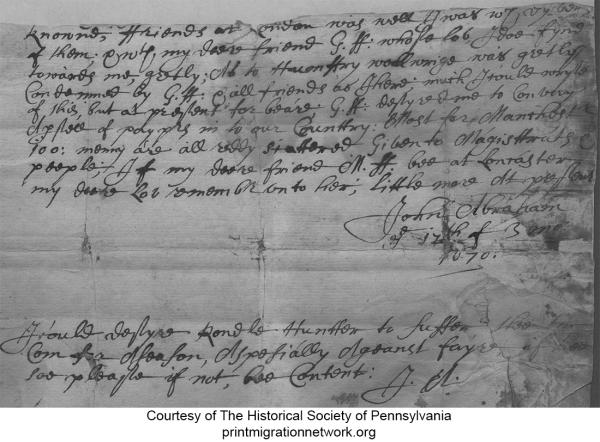 knowne; ffriends at London was well I was wth
of them: & wth my deere friend G: ff: whose lov I doe fynd
towards me, gretly; As to Humffry wollrige was gretly
Condemned by G: ff: & all friends as I here: much I could wryte
of this, but at present forbeare G: ff: desyred me to Convey
A psell of papyrs in to our Country: Most for Manchest
too: menny are all reddy scattered Given to Magistrats &
peeple; If my deere friend M: ff bee at Loncaster
my deere Lov remembr unto her; little more At prest but
John Abraham
12th of 3 mo
1670:
I could desyre Rondle Huntter to suffer
Com for A season, Aspesially Ageanst fayre if
soe please if not, bee Content: J. A.
Courtesy of The Historical Society of Pennsylvania
printmigrationnetwork.org